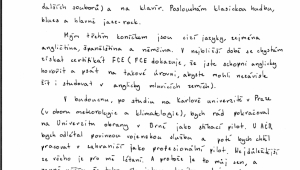 dalších souborů) a na klavír. Poslouchám klasickou hudbu,
blues a hlavně jazz-rock.
Mým třetím koníčkem jsou cizí jazyky, zejména
angličtina, španělština a němčina. V nejbližší době se chystám
získat certifikát FCE (FCE dokazuje, že jste schopni anglicky
hovořit a psát na takové úrovni, abyste mohli nezávisle
žít i studovat v anglicky mluvících zemích).
V budoucnu, po studiu na Karlově univerzitě v Praze
(v oboru meteorologie a klimatologie), bych rád pokračoval
na Univerzitu obrany v Brně jako stíhací pilot. U AČR
bych odlétal povinnou vojenskou službu a poté bych chtěl
pracovat v zahraničí jako profesionální pilot. Nejdůležitější
ze všeho je pro mě létání. A protože je to můj sen, a